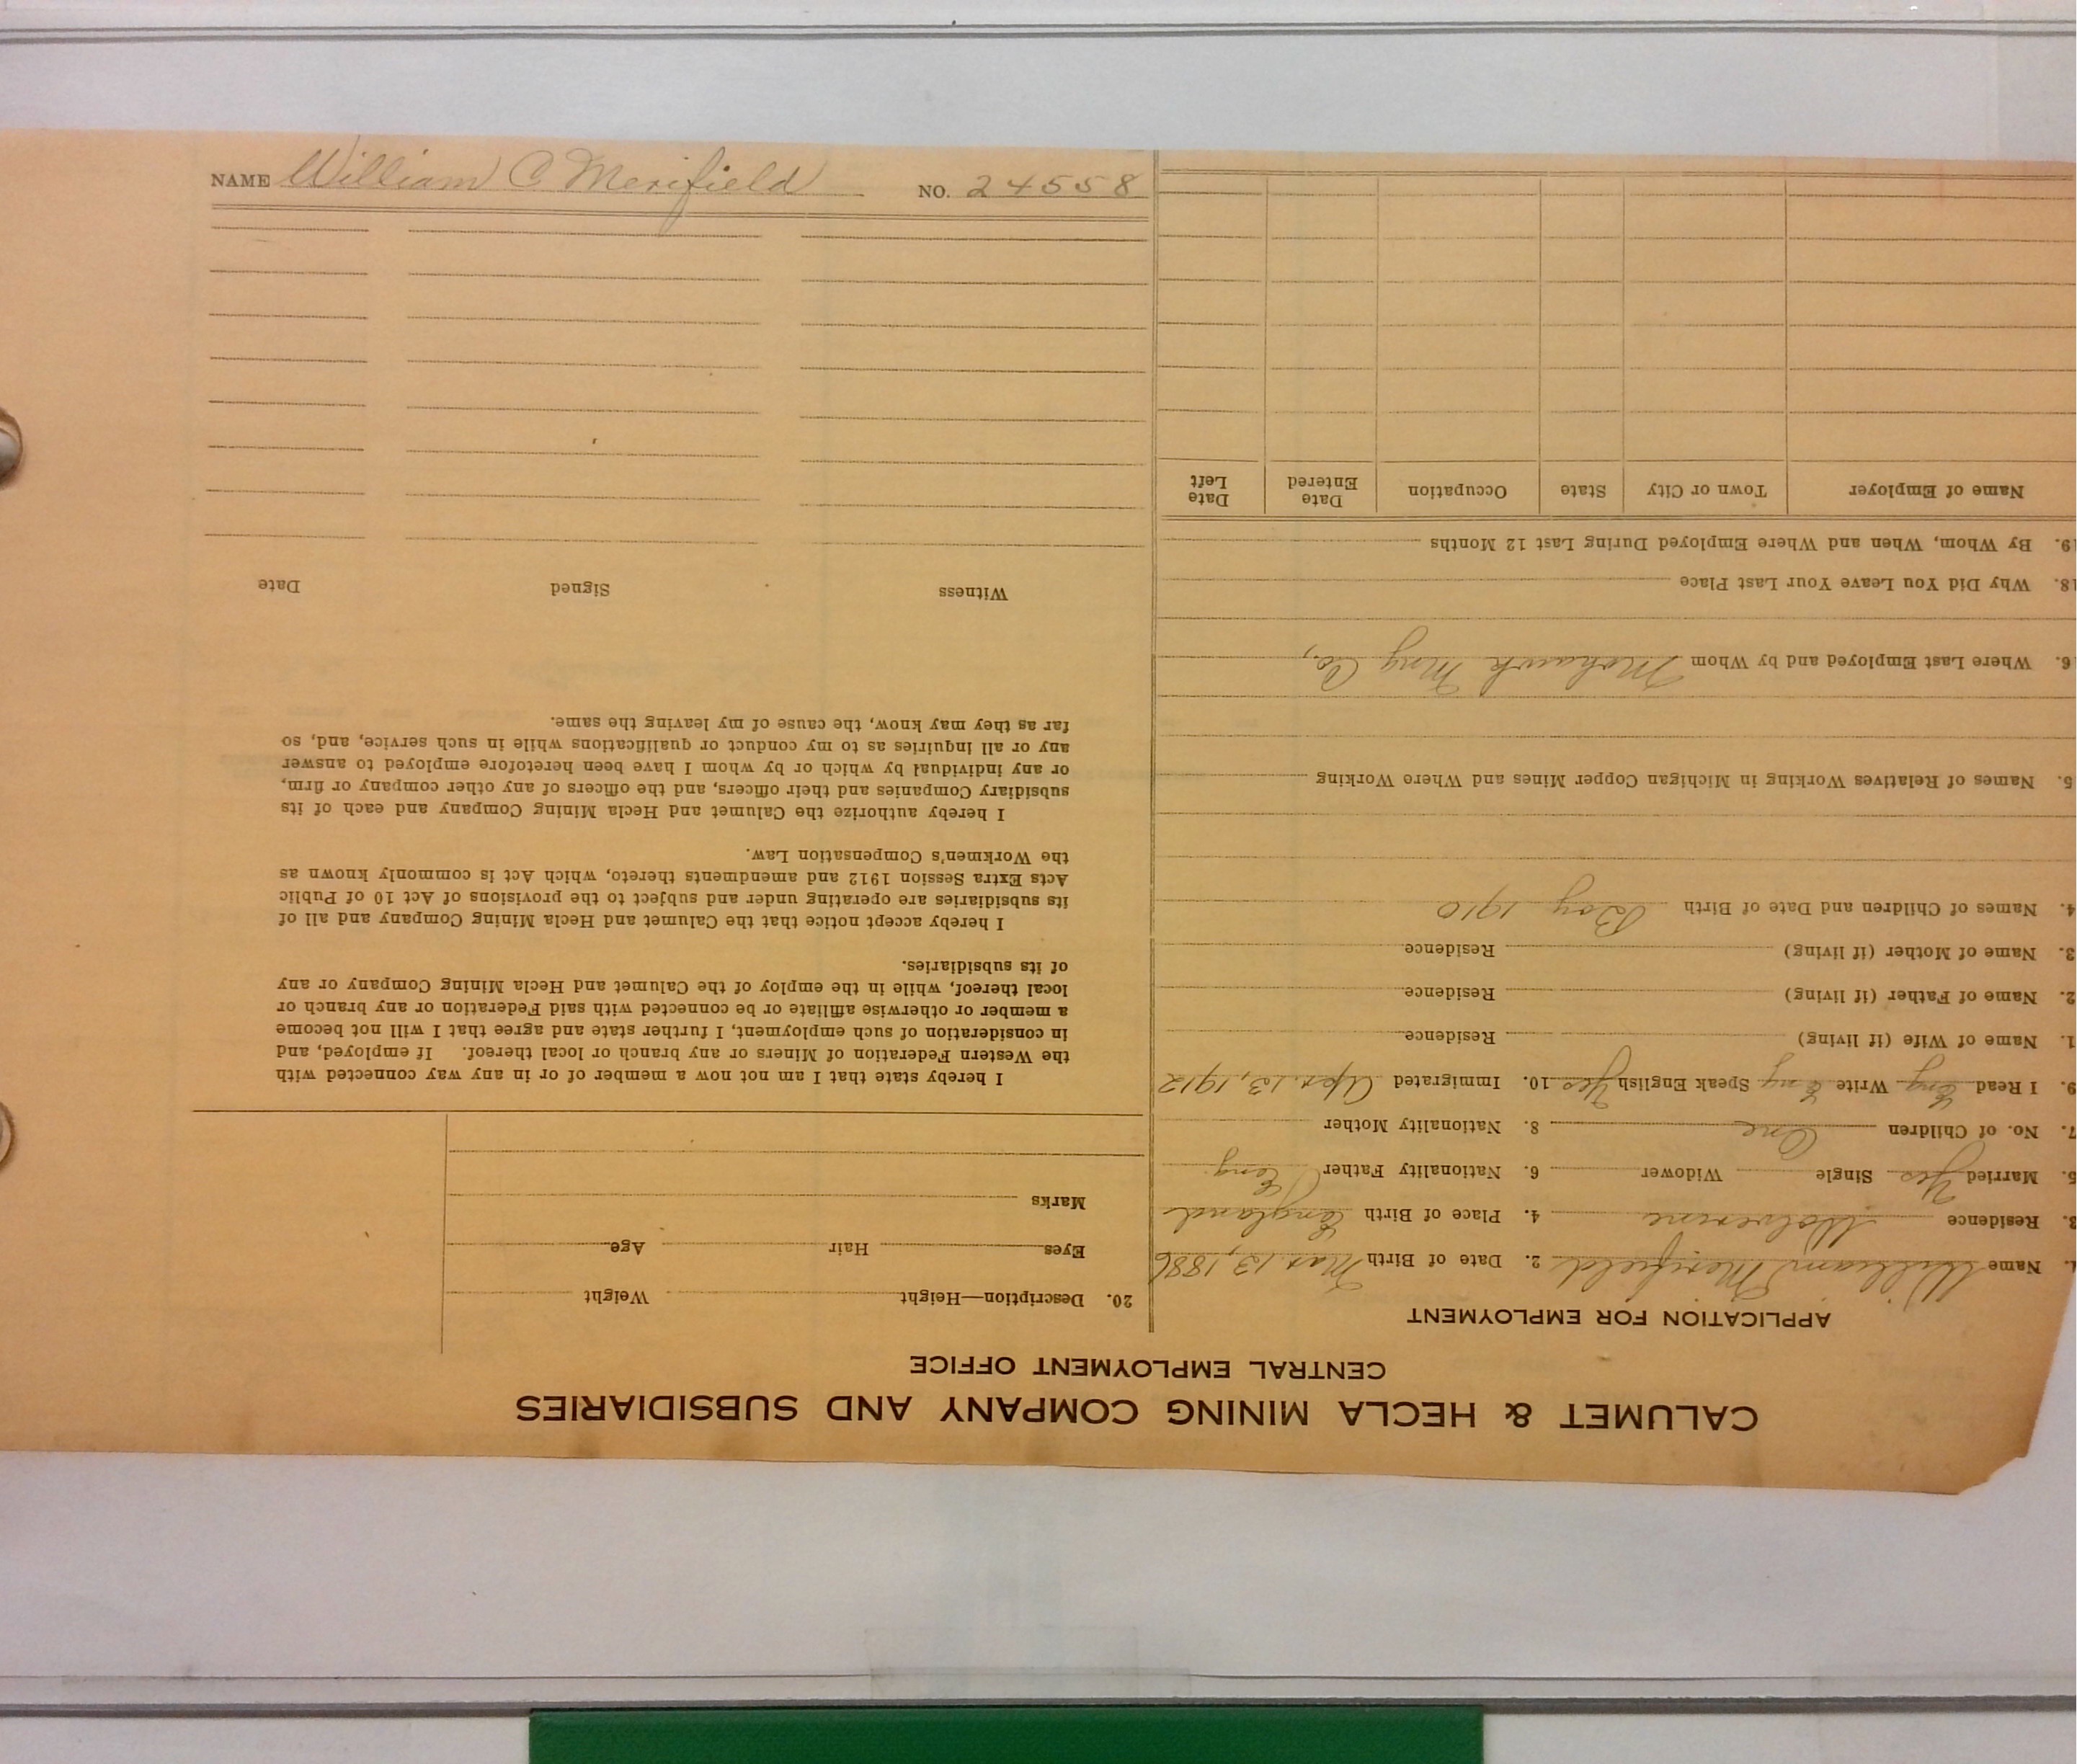 NAME William C Merifield NO. 24558
CALUMET & HECLA MINING COMPANY AND SUBSIDIARIES
CENTRAL EMPLOYMENT OFFICE
APPLICATION FOR EMPLOYMENT
1. Name William Merifield 2. Date of Birth Mar. 13, 1886
3. Residence Wolverine 4. Place of Birth England
5. Married Yes Single Widower 6. Nationality Father Eng
7. No. of Children One 8. Nationality Mother
9. I Read Eng Write Eng Speak English Yes 10. Immigrated Apr. 13, 1912
1. Name of Wife (if living) Residence
2. Name of Father (if living) Residence
3. Name of Mother (if living) Residence
4. Names of Children and Date of Birth Boy 1910
5. Names of Relatives Working in Michigan Copper Mines and Where Working
6. Where Last Employed and by Whom Mohawk Mng Co.,
18. Why Did You Leave Your Last Place
19. By Whom, When and Where Employed During Last 12 Months
Name of Employer Town or City State Occupation Date Entered Date Left
20. Description—Height Weight
Eyes Hair Age
Marks
I hereby state that I am not now a member of or in any way connected with
the Western Federation of Miners or any branch or local thereof. If employed, and
in consideration of such employment, I further state and agree that I will not become
a member or otherwise affiliate or be connected with said Federation or any branch or
local thereof, while in the employ of the Calumet and Hecla Mining Company or any
of its subsidiaries.
I hereby accept notice that the Calumet and Hecla Mining Company and all of
its subsidiaries are operating under and subject to the provisions of Act 10 of Public
Acts Extra Session 1912 and amendments thereto, which Act is commonly known as
the Workmen's Compensation Law.
I hereby authorize the Calumet and Hecla Mining Company and each of its
subsidiary Companies and their officers, and the officers of any other company or firm,
or any individual by which or by whom I have been heretofore employed to answer
any or all inquiries as to my conduct or qualifications while in such service, and, so
far as they may know, the cause of my leaving the same.
Witness Signed Date